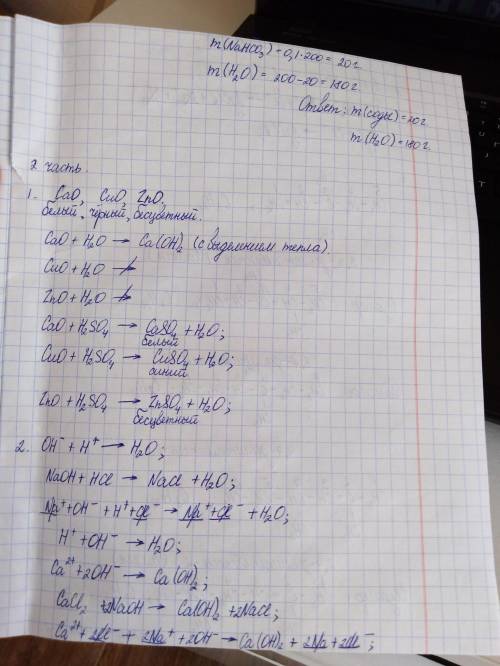 m(NaHCO₃) = 0,1·200 = 20 г.
m(H₂O) = 200-20 = 180 г.
Ответ: m(соды) = 20 г.
m(H₂O) = 180 г.
2 часть.
1. CaO, CuO, ZnO,
белый, чёрный, бесцветный.
CaO + H₂O → Ca(OH)₂ (с выделением тепла).
CuO + H₂O ↛
ZnO + H₂O ↛
CaO + H₂SO₄ → CaSO₄ + H₂O;
белый
CuO + H₂SO₄ → CuSO₄ + H₂O;
синий
ZnO + H₂SO₄ → ZnSO₄ + H₂O;
бесцветный
2. OH⁻ + H⁺ → H₂O;
NaOH + HCl → NaCl + H₂O;
Na⁺ + OH⁻ + H⁺ + Cl⁻ → Na⁺ + Cl⁻ + H₂O;
H⁺ + OH⁻ → H₂O;
Ca²⁺ + 2OH⁻ → Ca(OH)₂;
CaCl₂ + 2NaOH → Ca(OH)₂ + 2NaCl;
Ca²⁺ + 2Cl⁻ + 2Na⁺ + 2OH⁻ → Ca(OH)₂ + 2Na + 2Cl⁻;